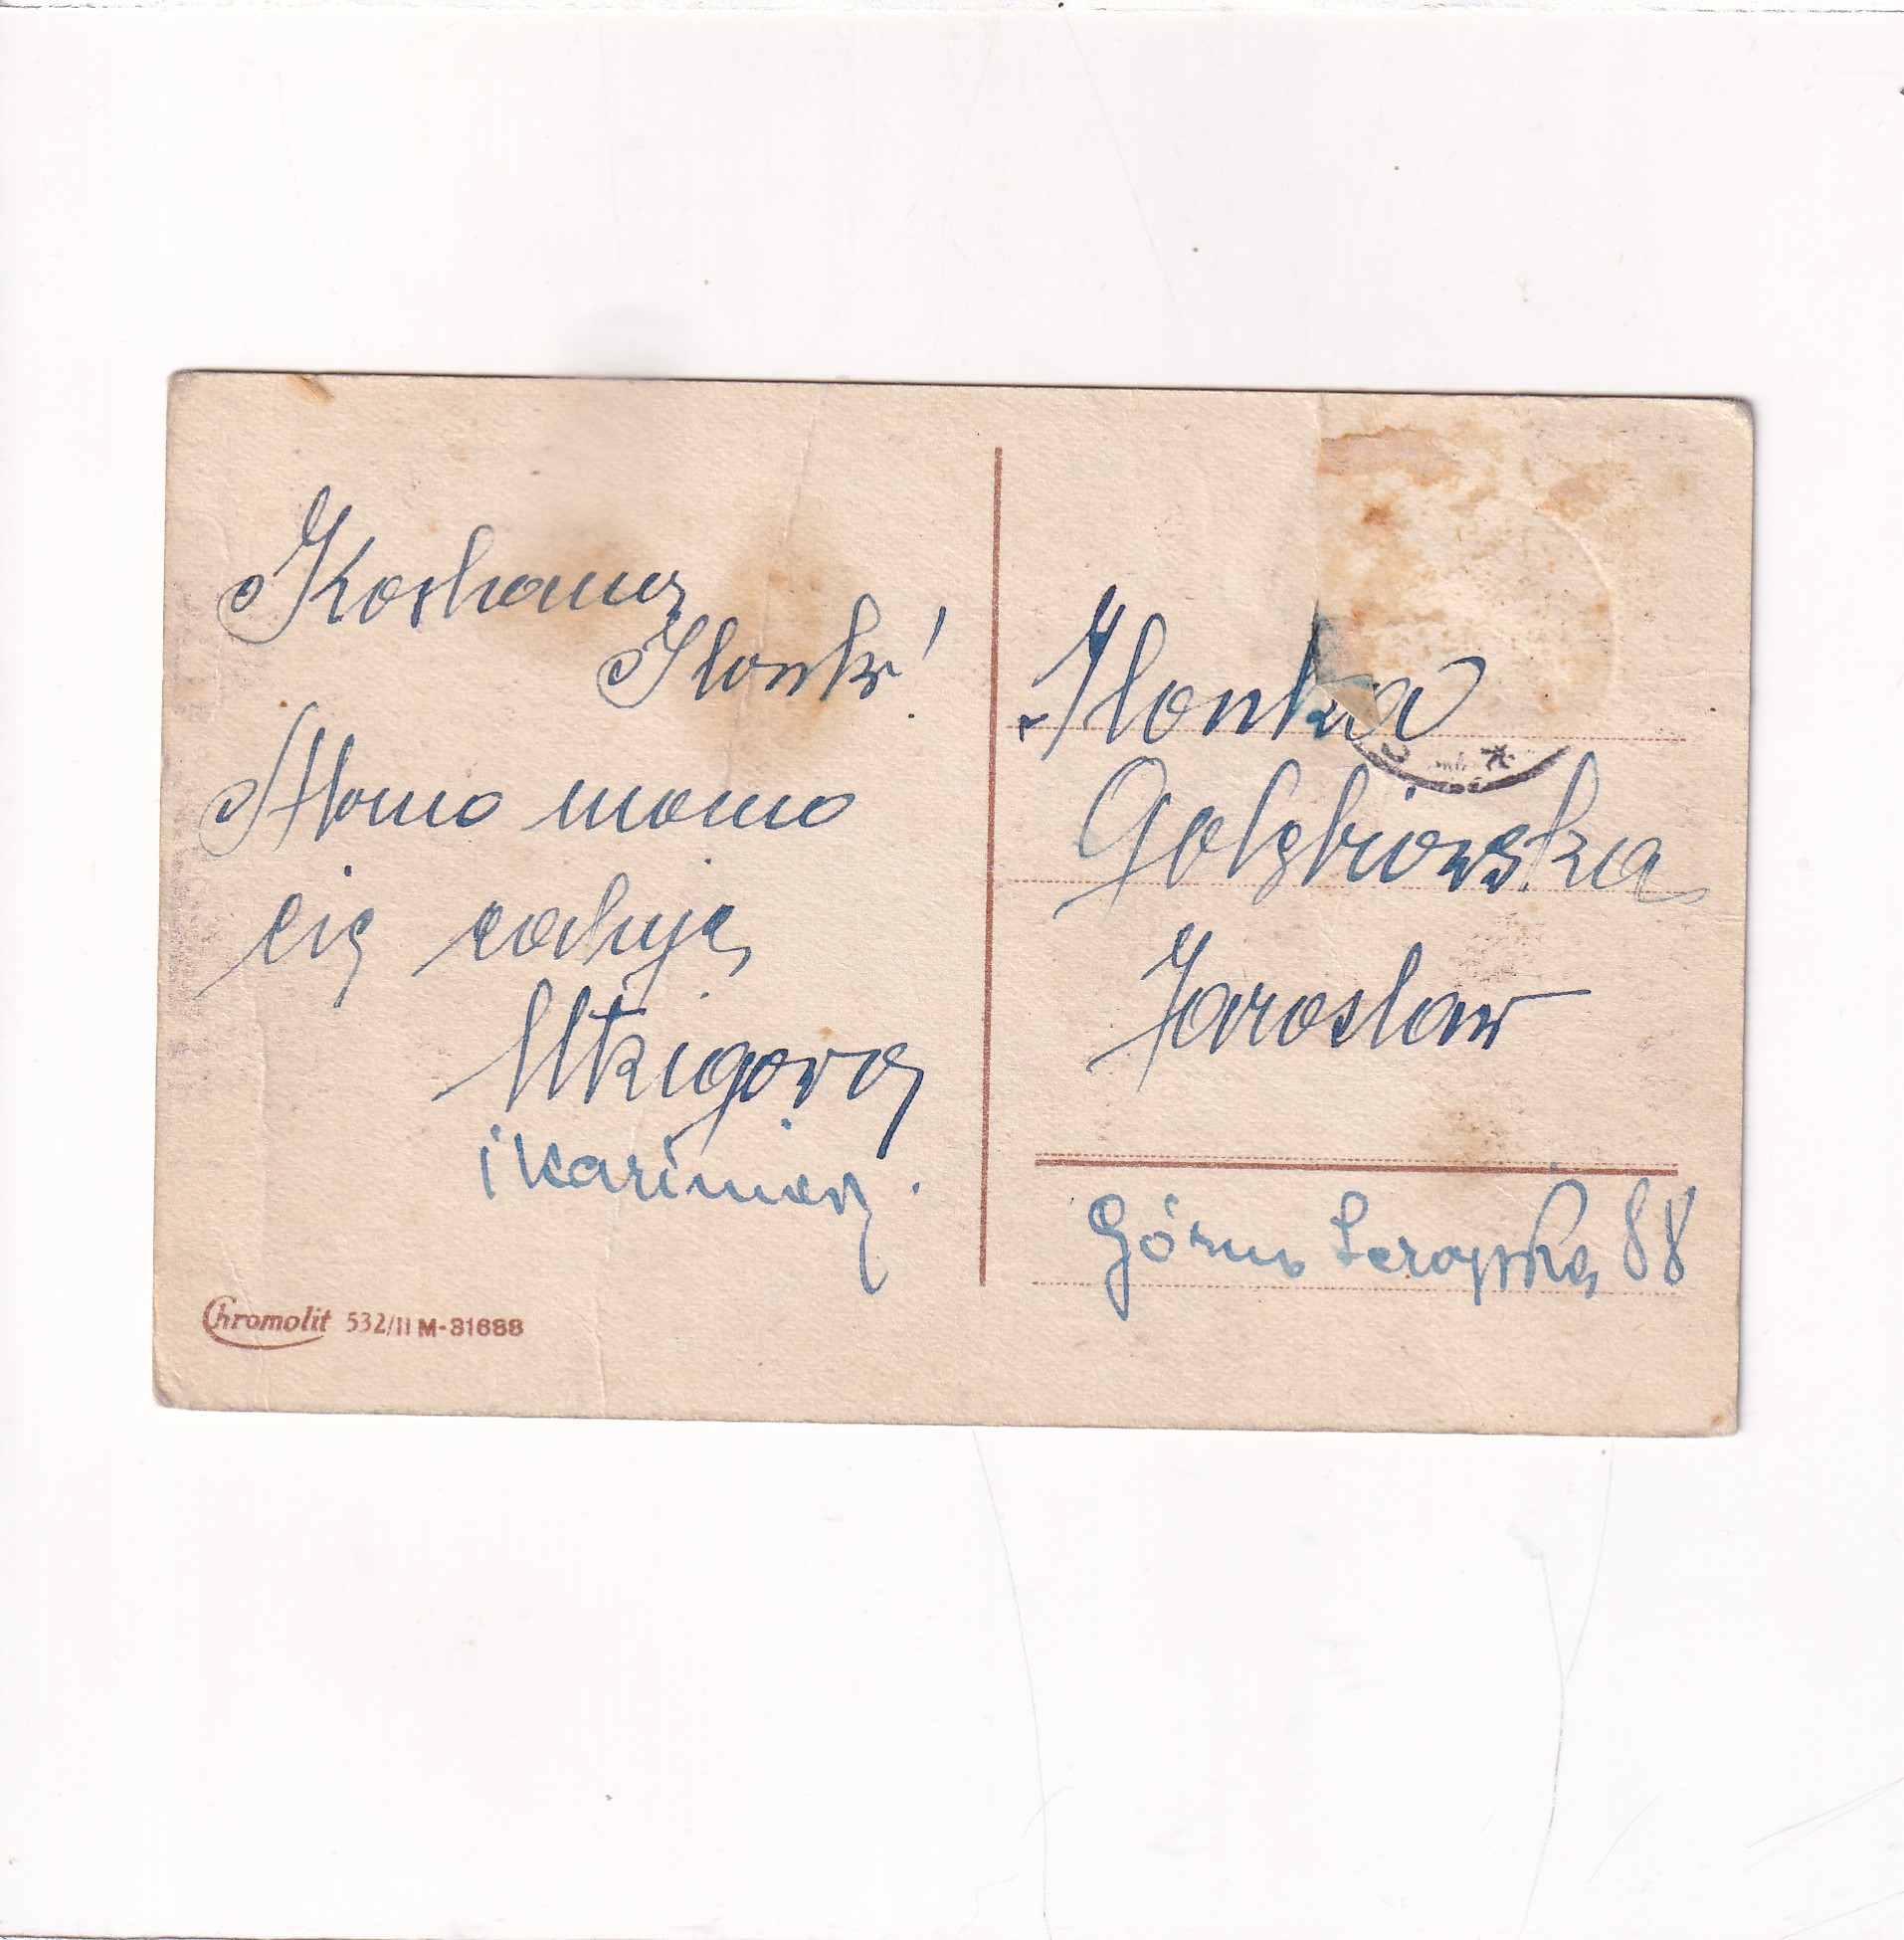 Kochany
Ilonk!
Słomo mamo
cię całuję
i Kazimierz.
Chromolit 532/II M-81688
Ilonka
Gołębiowska
Jarosław
Górno Leżajska 88